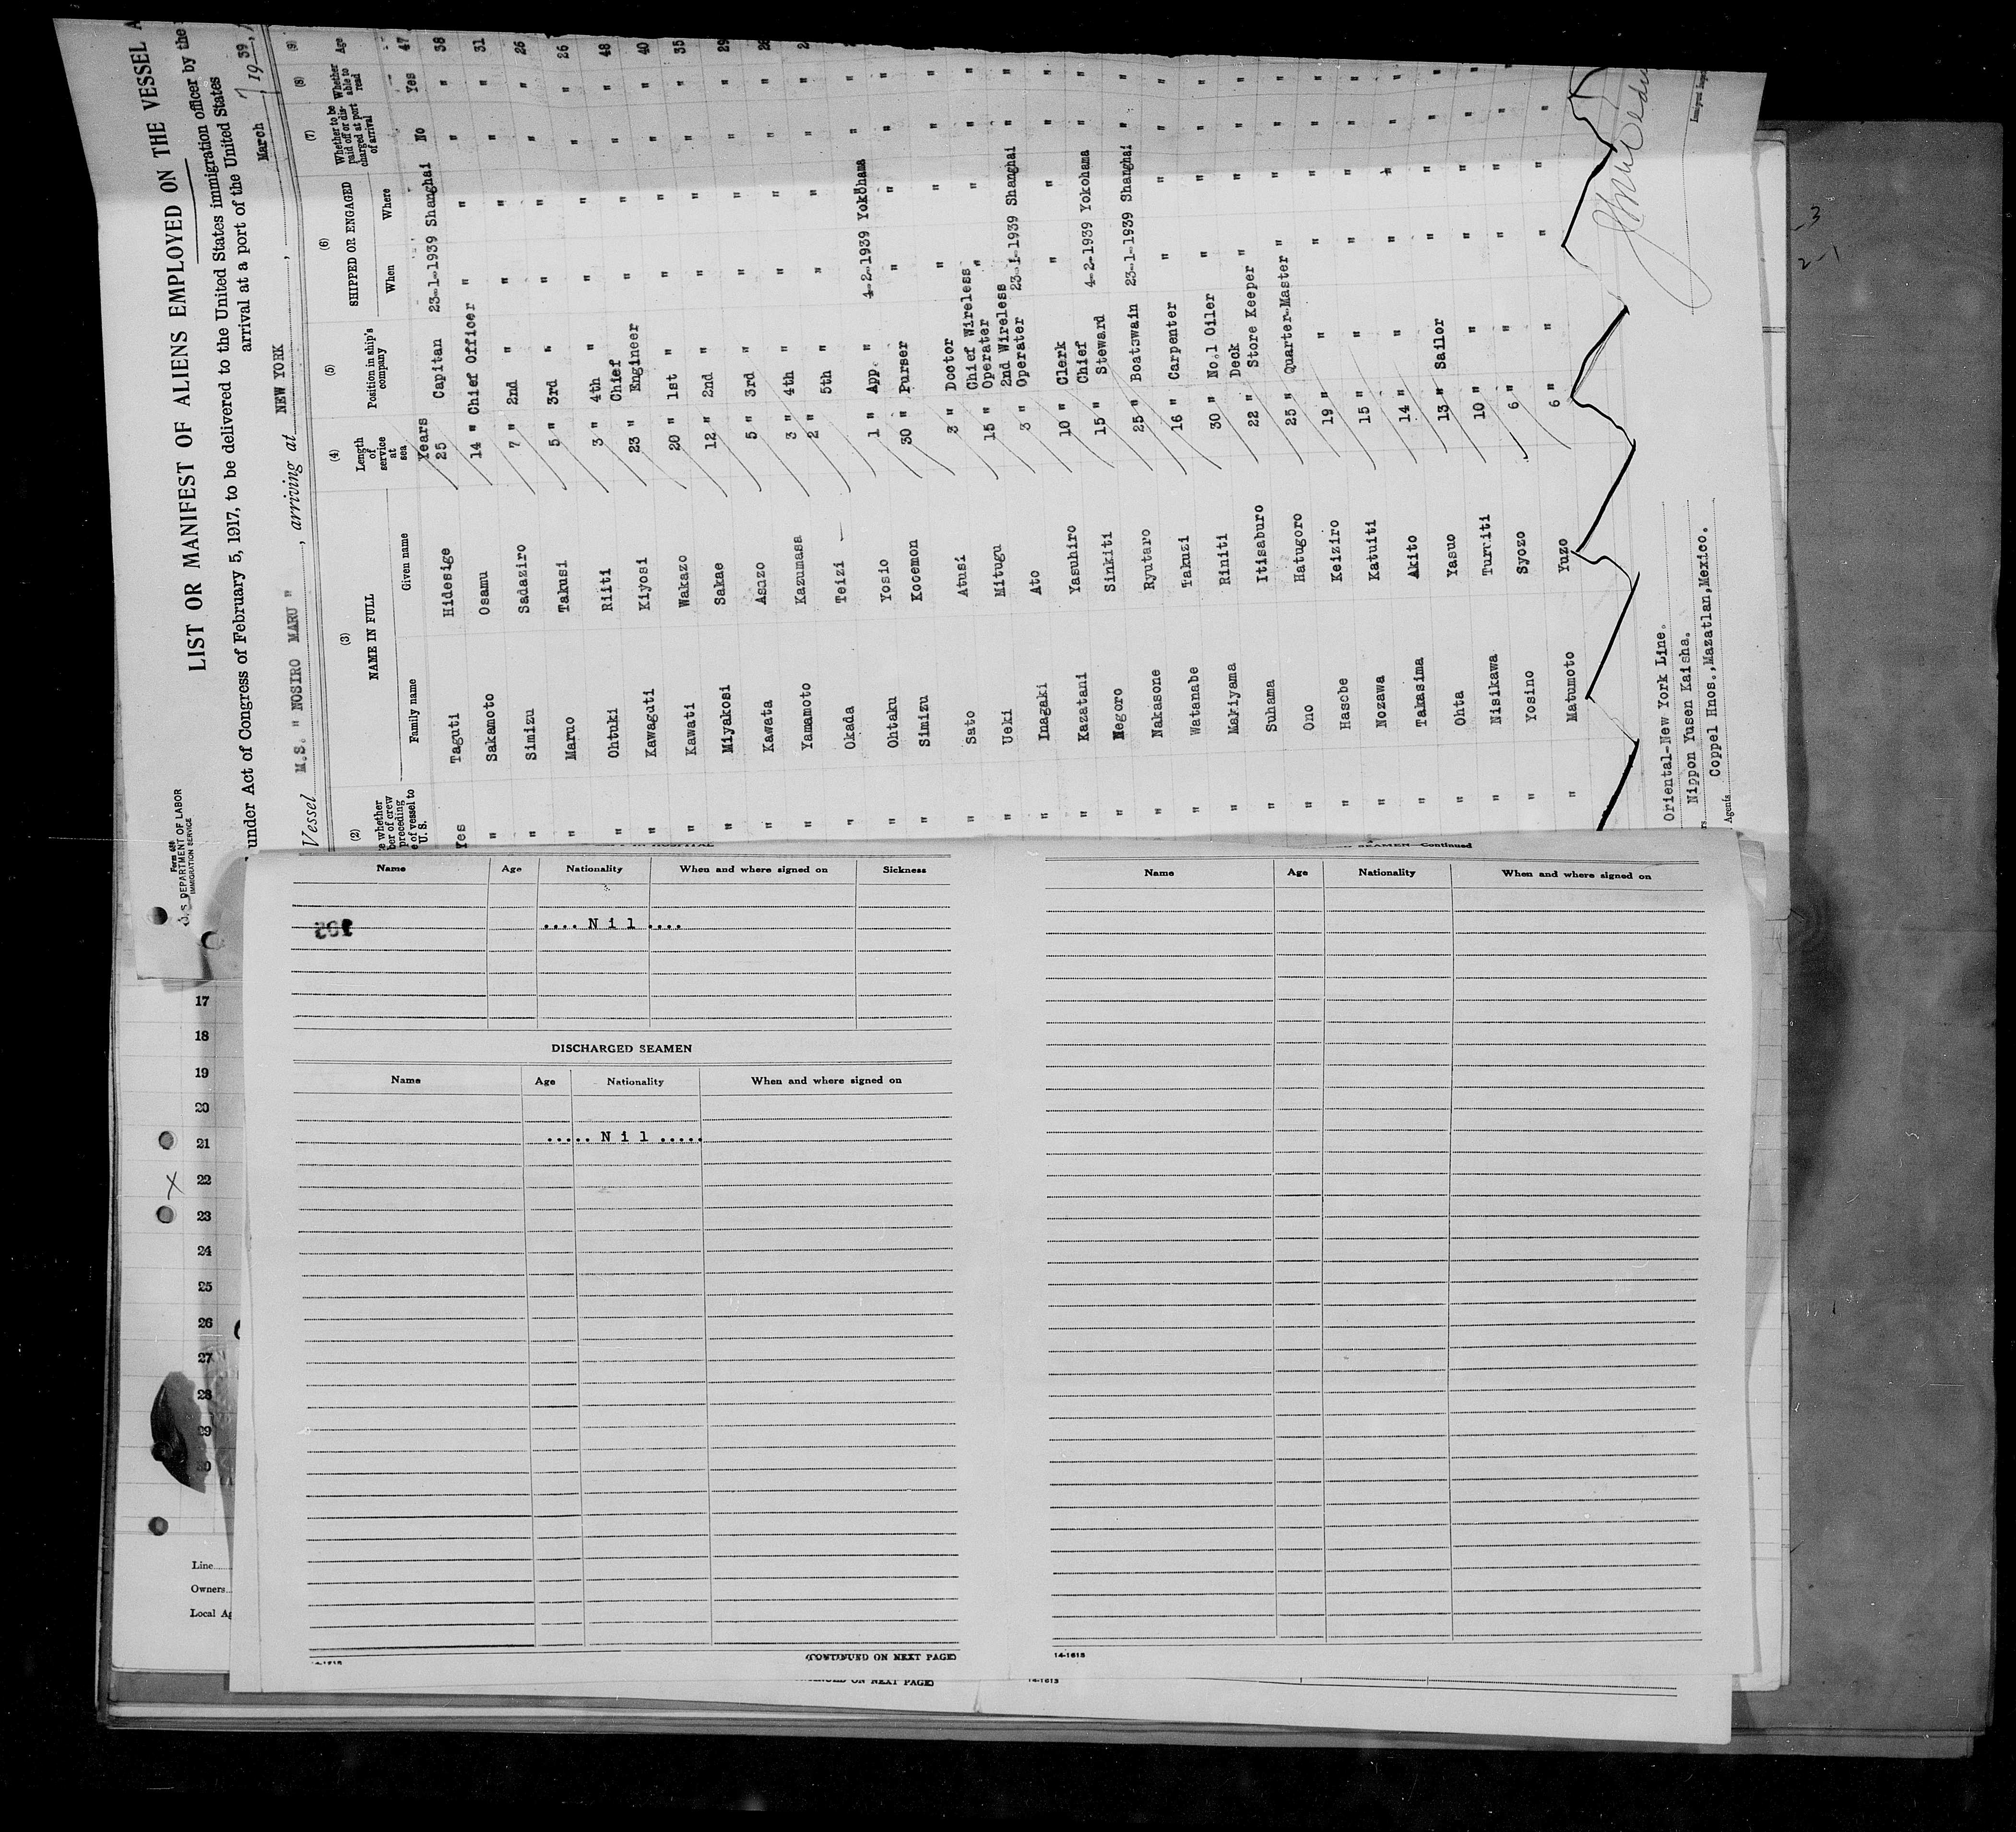 Form 689
U. S. DEPARTMENT OF LABOR
IMMIGRATION SERVICE
LIST OR MANIFEST OF ALIENS EMPLOYED ON THE VESSEL A
under Act of Congress of February 5, 1917, to be delivered to the United States immigration officer by the
arrival at a port of the United States
Vessel M.S. " NOSIRO MARU ", arriving at NEW YORK, March 7, 1939,
(2) (3) (4) (5) (6) (7) (8) (9)
NAME IN FULL
Family name Given name
Length of service at sea
Position in ship's company
SHIPPED OR ENGAGED
When Where
Whether to be paid off or discharged at port of arrival
Whether able to read
Age
Yes Taguti Hidesige Years 25 Capitan 23-1-1939 Shanghai No Yes 47
" Sakamoto Osamu 14 " Chief Officer " " " " 38
" Simizu Sadaziro 7 " 2nd " " " " " 31
" Maruo Takusi 5 " 3rd " " " " " 26
" Ohtuki Riiti 3 " 4th " " " " " 26
" Kawaguti Kiyosi 23 " Chief Engineer " " " " 48
" Kawati Wakazo 20 " 1st " " " " " 40
" Miyakosi Sakae 12 " 2nd " " " " " 35
" Kawata Asazo 5 " 3rd " " " " " 29
" Yamamoto Kazumasa 3 " 4th " " " " "
" Okada Teizi 2 " 5th " " " " "
" Ohtaku Yosio 1 " App. " 4-2-1939 Yokohama " "
" Simizu Kocemon 30 " Purser " " " "
" Sato Atusi 3 " Doctor " " " "
" Ueki Mitugu 15 " Chief Wireless Operater " " " "
" Inagaki Ato 3 " 2nd Wireless Operater 23-1-1939 Shanghai " "
" Kazatani Yasuhiro 10 " Clerk " " " "
" Negoro Sinkiti 15 " Chief Steward 4-2-1939 Yokohama " "
" Nakasone Ryutaro 25 " Boatswain 23-1-1939 Shanghai " "
" Watanabe Takuzi 16 " Carpenter " " " "
" Makiyama Riniti 30 " No.1 Oiler " " " "
" Suhama Itisaburo 22 " Deck Store Keeper " " " "
" Ono Hatugoro 25 " Quarter-Master " " " "
" Hascbe Keiziro 19 " " " " " "
" Nozawa Katuiti 15 " " " " " "
" Takasima Akito 14 " " " " " "
" Ohta Yasuo 13 " Sailor " " " "
" Nisikawa Turuiti 10 " " " " " "
" Yosino Syozo 6 " " " " " "
" Matumoto Yuzo 6 " " " " "
Oriental-New York Line.
Nippon Yusen Kaisha.
Agents Coppel Hnos.,Mazatlan,Mexico.
Name Age Nationality When and where signed on Sickness
.... N i l ....
DISCHARGED SEAMEN
Name Age Nationality When and where signed on
..... N i l .....
(CONTINUED ON NEXT PAGE)
SEAMEN—Continued
Name Age Nationality When and where signed on
14-1613
ON NEXT PAGE)
14-1613
17
18
19
20
21
22
23
24
25
26
27
28
29
30
Line
Owners
Local Ag